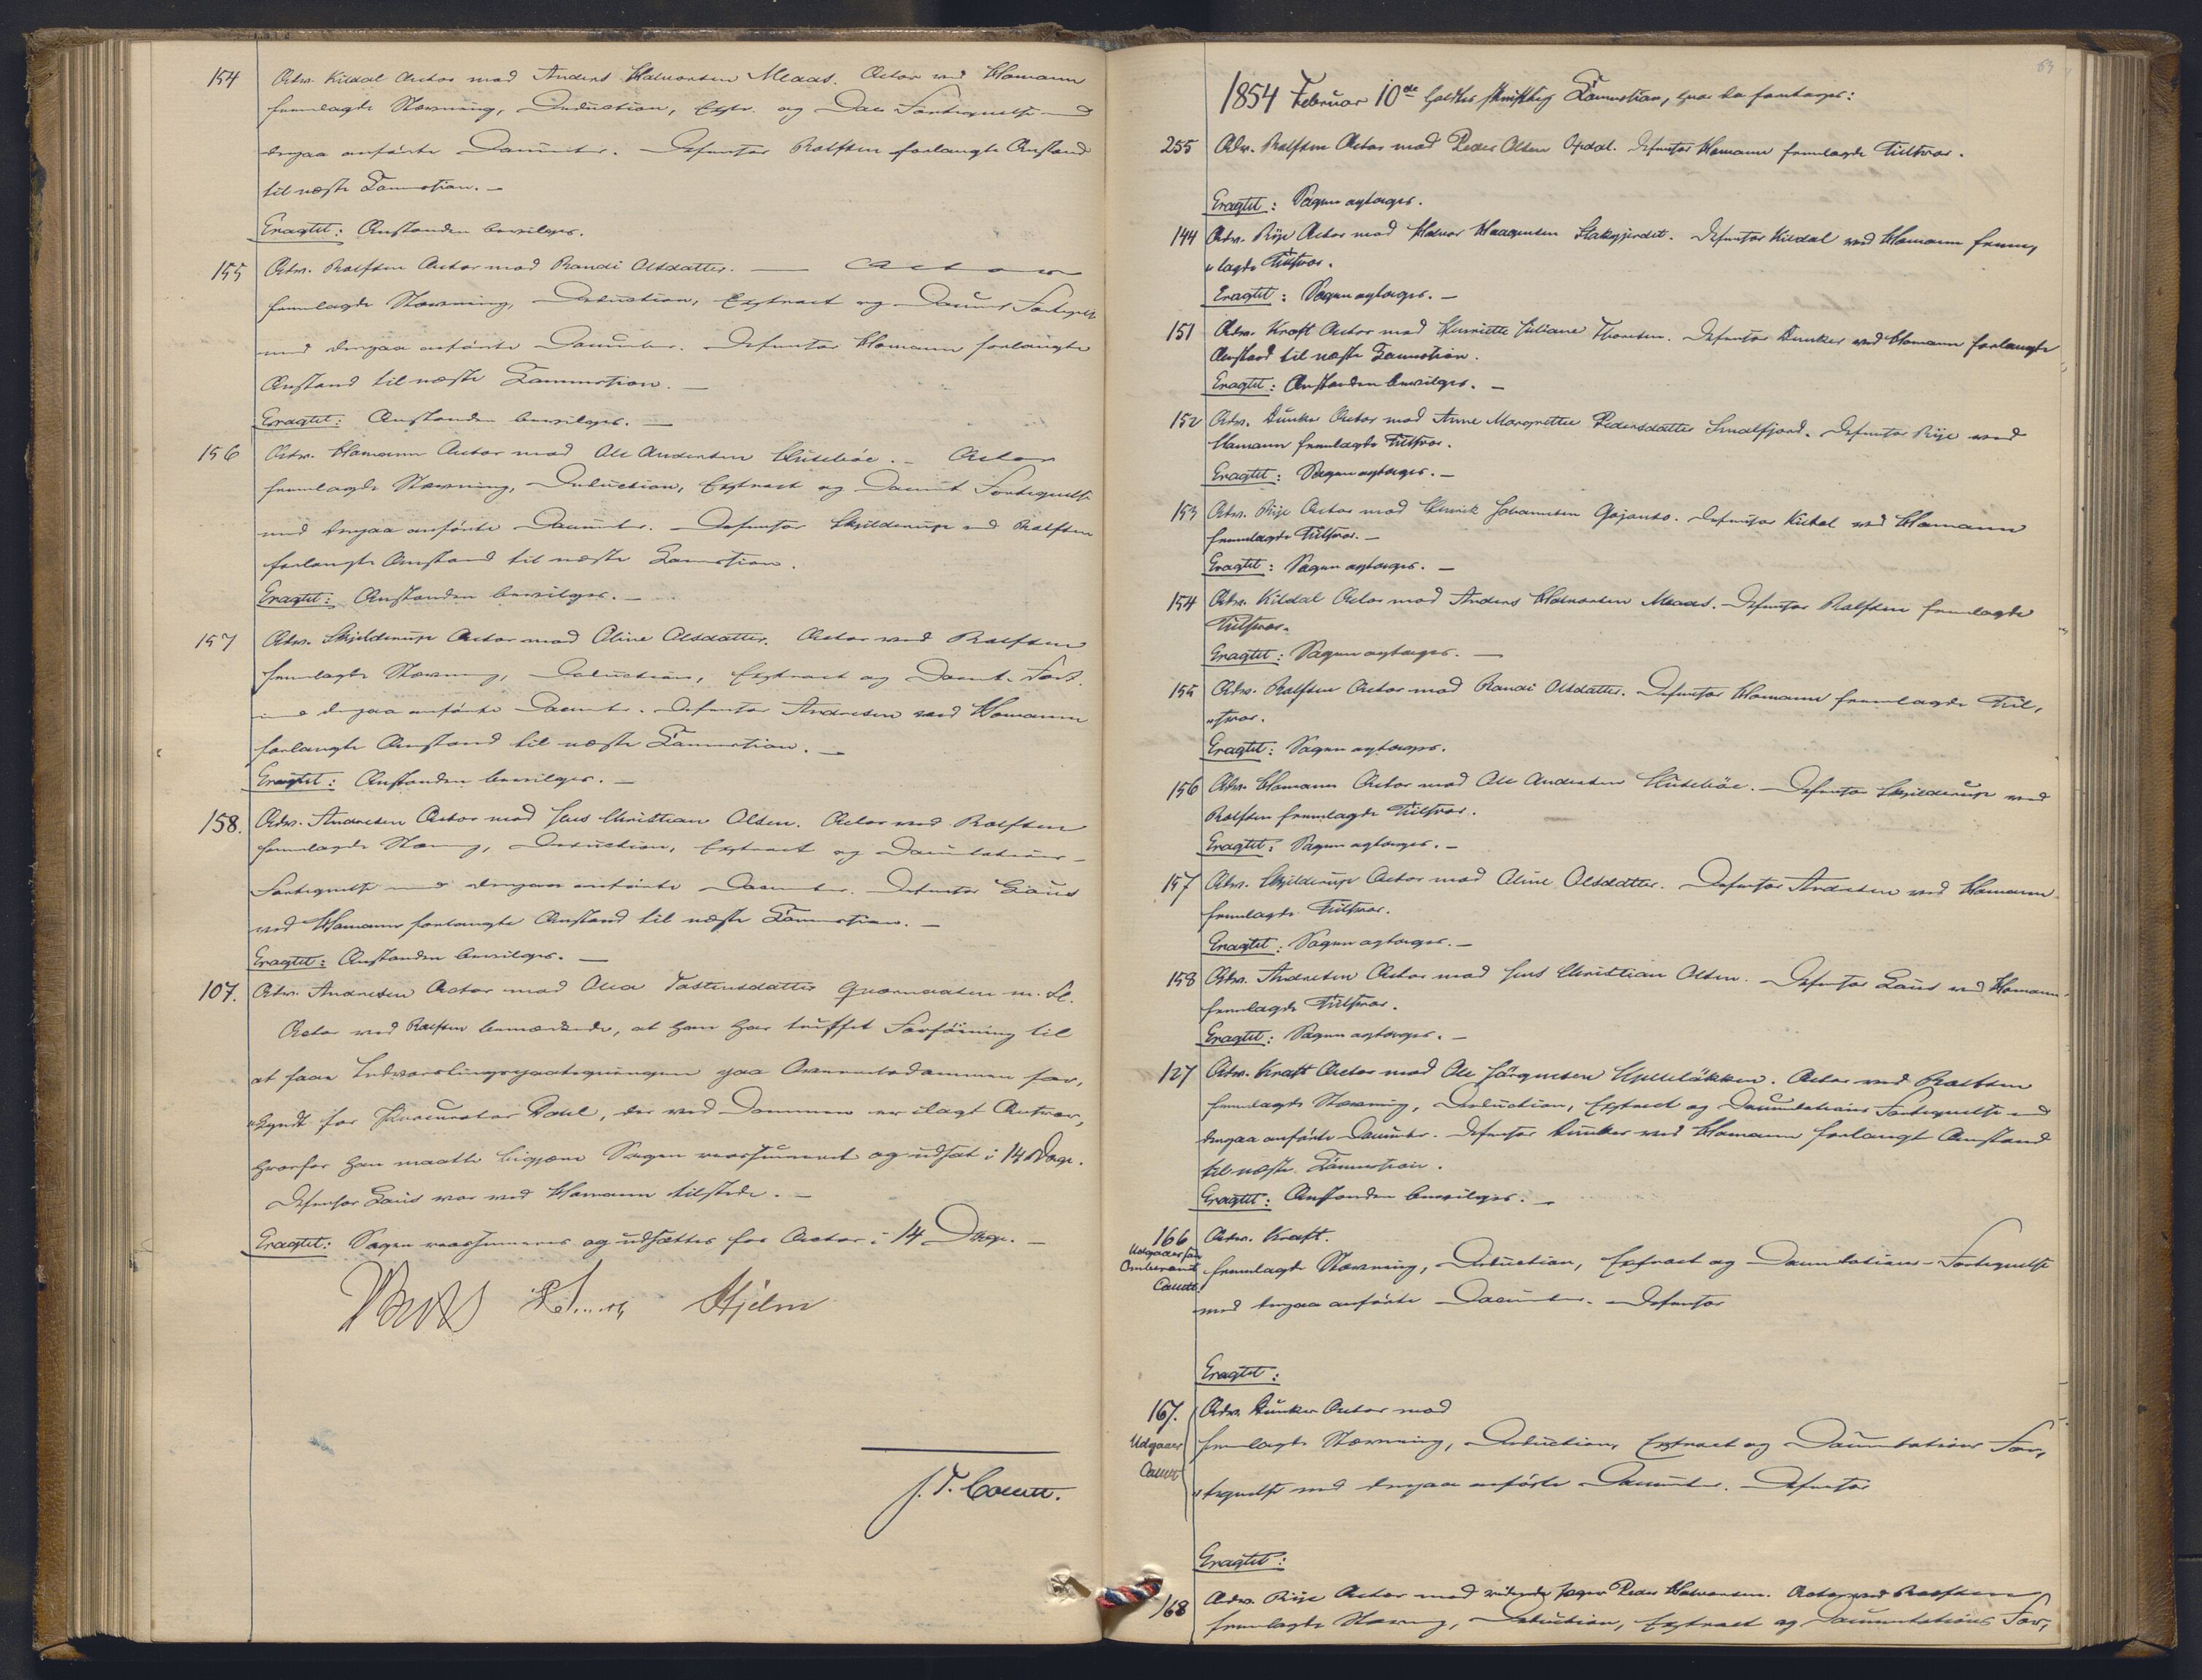 154 Adv. Kildal Actor mod Anders Halvorsen Moaas. Actor ved Homann
fremlagde Stævning, Deduction, Extr. og Doc Fortegnelse med
derpaa anførte Documenter. Defensor Rolfsen forlangte Anstand
til næste Session.
Eragtet: Anstanden bevilges.
155 Adv. Rolfsen Actor mod Randi Olsdatter. Actor
fremlagde Stævning, Deduction, Extract og Docum Fortegnelse
med derpaa anførte Documenter. Defensor Homann forlangte
Anstand til næste Session.
Eragtet: Anstanden bevilges.
156 Adv. Homann Actor mod Ole Andersen Actor
fremlagde Stævning, Deduction, Extract og Docmt Fortegnelse
med derpaa anførte Documenter. Defensor Skjelderup ved Rolfsen
forlangte Anstand til næste Session.
Eragtet: Anstanden bevilges.
157 Adv. Skjelderup Actor mod Oline Olsdatter. Actor ved Rolfsen
fremlagde Stævning, Deduction, Extract og Docmt. Fort.
med derpaa anførte Documenter. Defensor Andresen ved Homann
forlangte Anstand til næste Session.
Eragtet: Anstanden bevilges.
158. Adv. Andresen Actor mod Jens Christian Olsen. Actor ved Rolfsen
fremlagde Stævning, Deduction, Extract og Documentations-
Fortegnelse med derpaa anførte Documenter. Defensor
ved Homann forlangte Anstand til næste Session.
Eragtet: Anstanden bevilges.
107. Adv. Andresen Actor mod Olea Tostensdatter m. fl.
Actor ved Rolfsen bemærkede, at han har truffet Forføining til
at faae paa Dommen for,
"kyndt for Procurator der ved Dommen er ilagt Ansvar,
hvorfor han maatte begjære Sagen reassumeret og udsat i 14 Dage.
Defensor var ved Homann tilstede.
Eragtet: Sagen reassumeres og udsættes for Actor i 14 Dage.
Hjelm
J. T. Coucu.
63
1854 Februar 10de holdtes skriftlig Session, hvor da foretoges:
255 Adv. Rolfsen Actor mod Peder Olsen Opdal. Defensor Homann fremlagde Tilsvar.
Eragtet: Sagen optages.
144 Adv. Rije Actor mod Halvor Haagensen Defensor Kildal ved Homann frem,
"lagde Tilsvar.
Eragtet: Sagen optages.
151 Adv. Kraft Actor mod Henriette Juliane Thoresen. Defensor Dunker ved Homann forlangte
Anstand til næste Session.
Eragtet: Anstanden bevilges.
152 Adv. Dunker Actor mod Anne Margrethe Pedersdatter Smalfjord. Defensor Rije ved
Homann fremlagde Tilsvar.
Eragtet: Sagen optages.
153 Adv. Rije Actor mod Henrik Johannesen Defensor Kildal ved Homann
fremlagde Tilsvar.
Eragtet: Sagen optages.
154 Adv. Kildal Actor mod Anders Halvorsen Moaas. Defensor Rolfsen fremlagde
Tilsvar.
Eragtet: Sagen optages.
155 Adv. Rolfsen Actor mod Randi Olsdatter. Defensor Homann fremlagde Til,
"svar.
Eragtet: Sagen optages.
156 Adv. Homann Actor mod Ole Andersen Defensor Skjelderup ved
Rolfsen fremlagde Tilsvar.
Eragtet: Sagen optages.
157 Adv. Skjelderup Actor mod Oline Olsdatter. Defensor Andresen ved Homann
fremlagde Tilsvar.
Eragtet: Sagen optages.
158 Adv. Andresen Actor mod Jens Christian Olsen. Defensor ved Homann
fremlagde Tilsvar.
Eragtet: Sagen optages.
127 Adv. Kraft Actor mod Ole Jörgensen Actor ved Rolfsen
fremlagde Stævning, Deduction, Extract og Documentations Fortegnelse med
derpaa anførte Documenter. Defensor Dunker ved Homann forlangte Anstand
til næste Session.
Eragtet: Anstanden bevilges.
166 Adv. Kraft.
Udgaaer
fremlagde Stævning, Deduction, Extract og Documentations-Fortegnelse
med derpaa anførte Documenter. Defensor
Eragtet:
167. Adv. Dunker Actor mod
Udgaaer
fremlagde Stævning, Deduction, Extract og Documentations For,
"tegnelse med derpaa anførte Documenter. Defensor
Eragtet:
168 Adv. Rije Actor mod ridende Jæger Peder Halvorsen. Actor ved Rolfsen
fremlagde Stævning, Deduction, Extract og Documentations For,